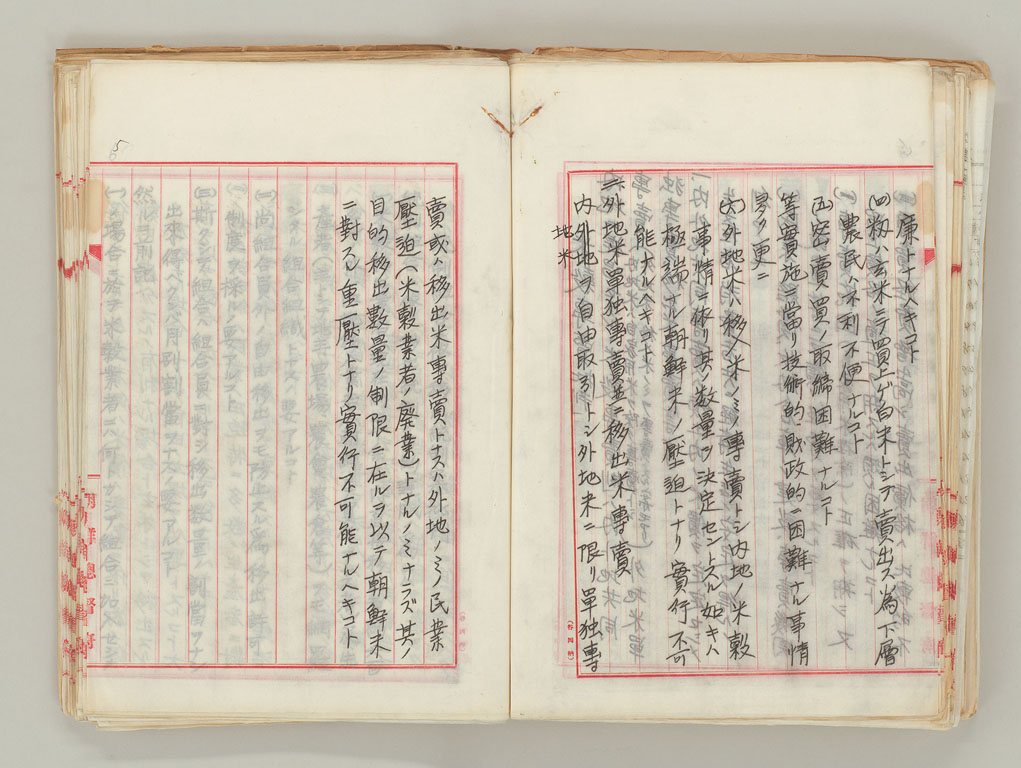 廉ナルヘキコト
(四)籾ハ玄米ニテ買上ゲ白米トシテ賣出ス為下層
農民ハ不利不便ナルコト
(五)密賣買ノ取締困難ナルコト
等實施ニ當リ技術的財政的ニ困難ナル事情
多ク更ニ
(六)外地米ハ移入米ノミノ專賣トシ内地ノ米穀
事情ニ依リ其ノ數量ヲ決定セントスル如キハ
極端ナル朝鮮米ノ壓迫トナリ實行不可
能ナルヘキコト
二、外地米單独專賣並ニ移出米專賣
内外地ヲ自由取引トシ外地米ニ限リ單独專
地米
賣或ハ移出米專賣トスハ外地ノミノ民業
壓迫(米穀業者ノ廢業)トナルノミナラズ其ノ
目的移出數量ノ制限ニ在ルヲ以テ朝鮮米
ニ對スル重壓トナリ實行不可能ナルヘキコト
5
朝鮮總督府